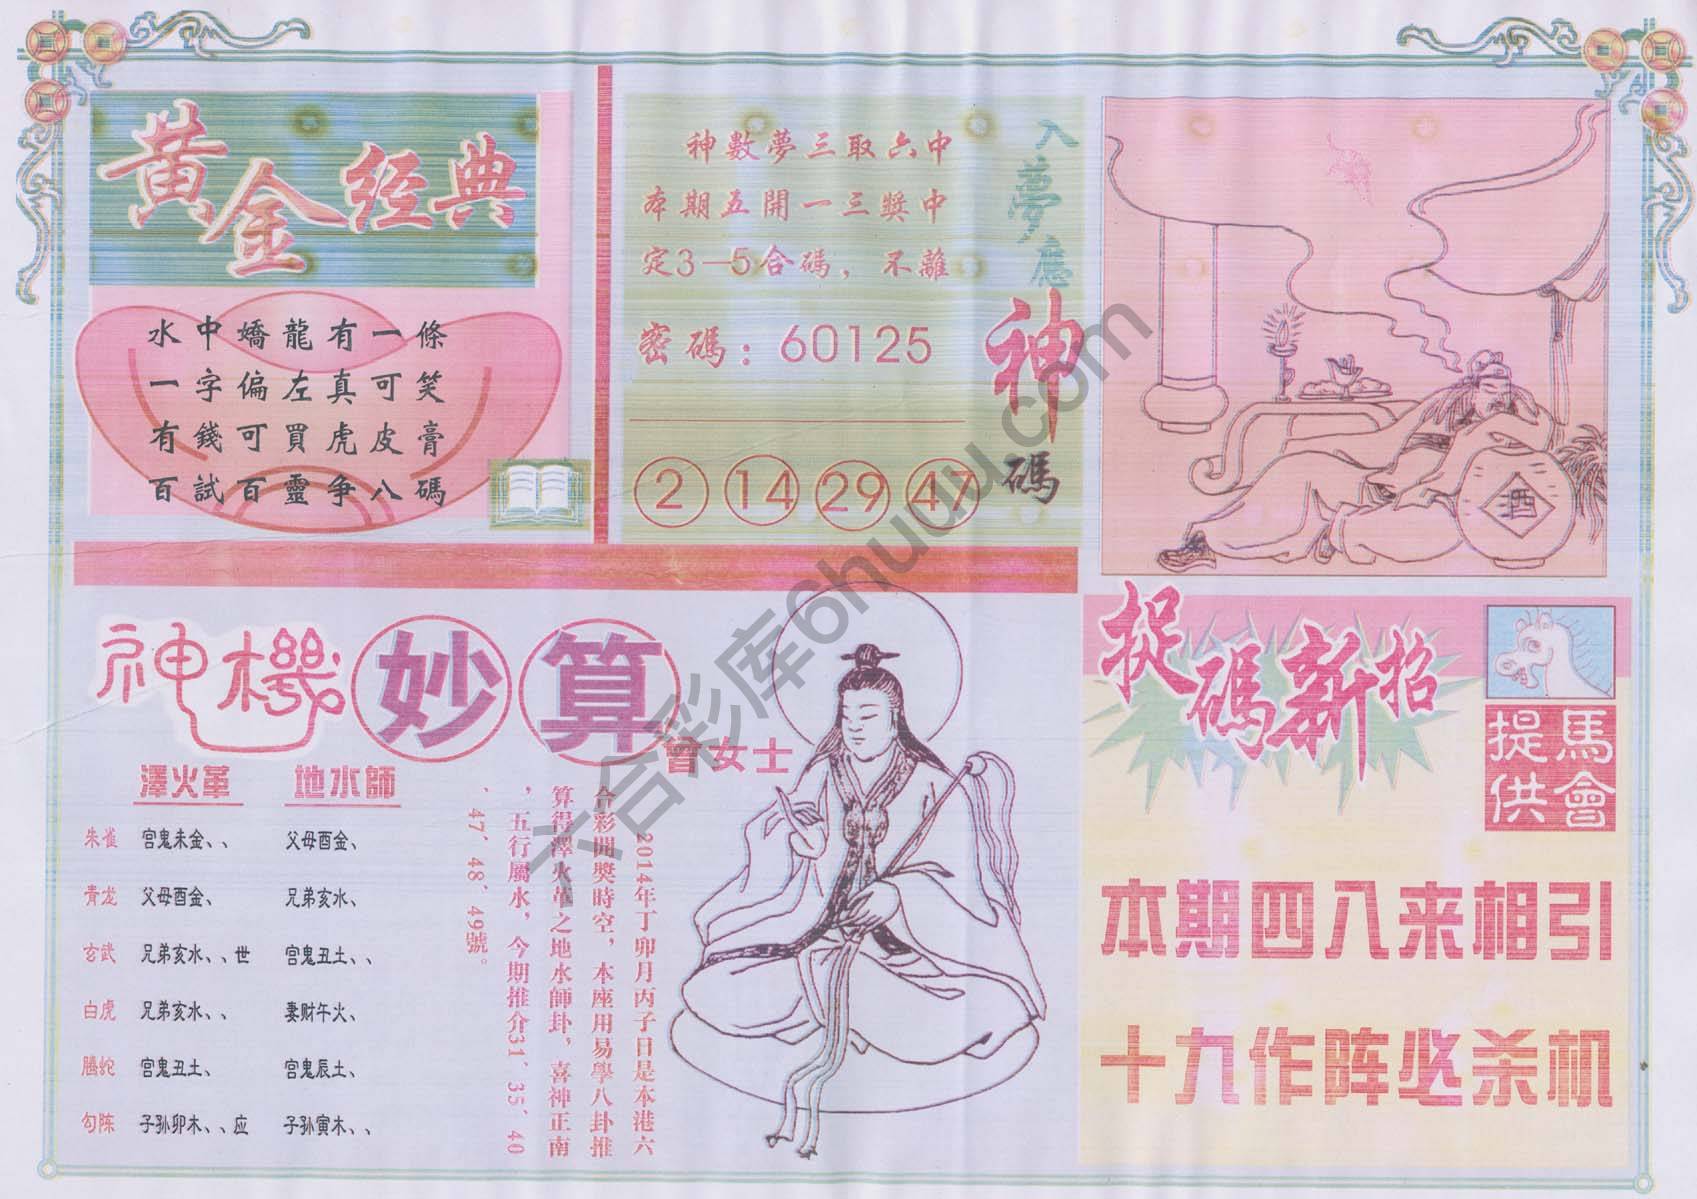 黃金經典
水中嬌龍有一條
一字偏左真可笑
有錢可買虎皮膏
百試百靈爭八碼
入夢應神碼
神數夢三取六中
本期五開一三獎中
定3—5合碼，不離
密碼：60125
2 14 29 47
酒
神機妙算
曾女士
澤火革 地水師
朱雀 官鬼未金、、 父母酉金、
青龙 父母酉金、 兄弟亥水、
玄武 兄弟亥水、、世 官鬼丑土、、
白虎 兄弟亥水、、 妻财午火、
騰蛇 官鬼丑土、 官鬼辰土、
勾陈 子孙卯木、、应 子孙寅木、、
2014年丁卯月丙子日是本港六
合彩開獎時空，本座用易學八卦推
算得澤火革之地水師卦，喜神正南
，五行屬水，今期推介31、35、40
、47、48、49號。
捉碼新招
馬會提供
本期四八来相引
十九作阵必杀机
六合彩库6huuu.com